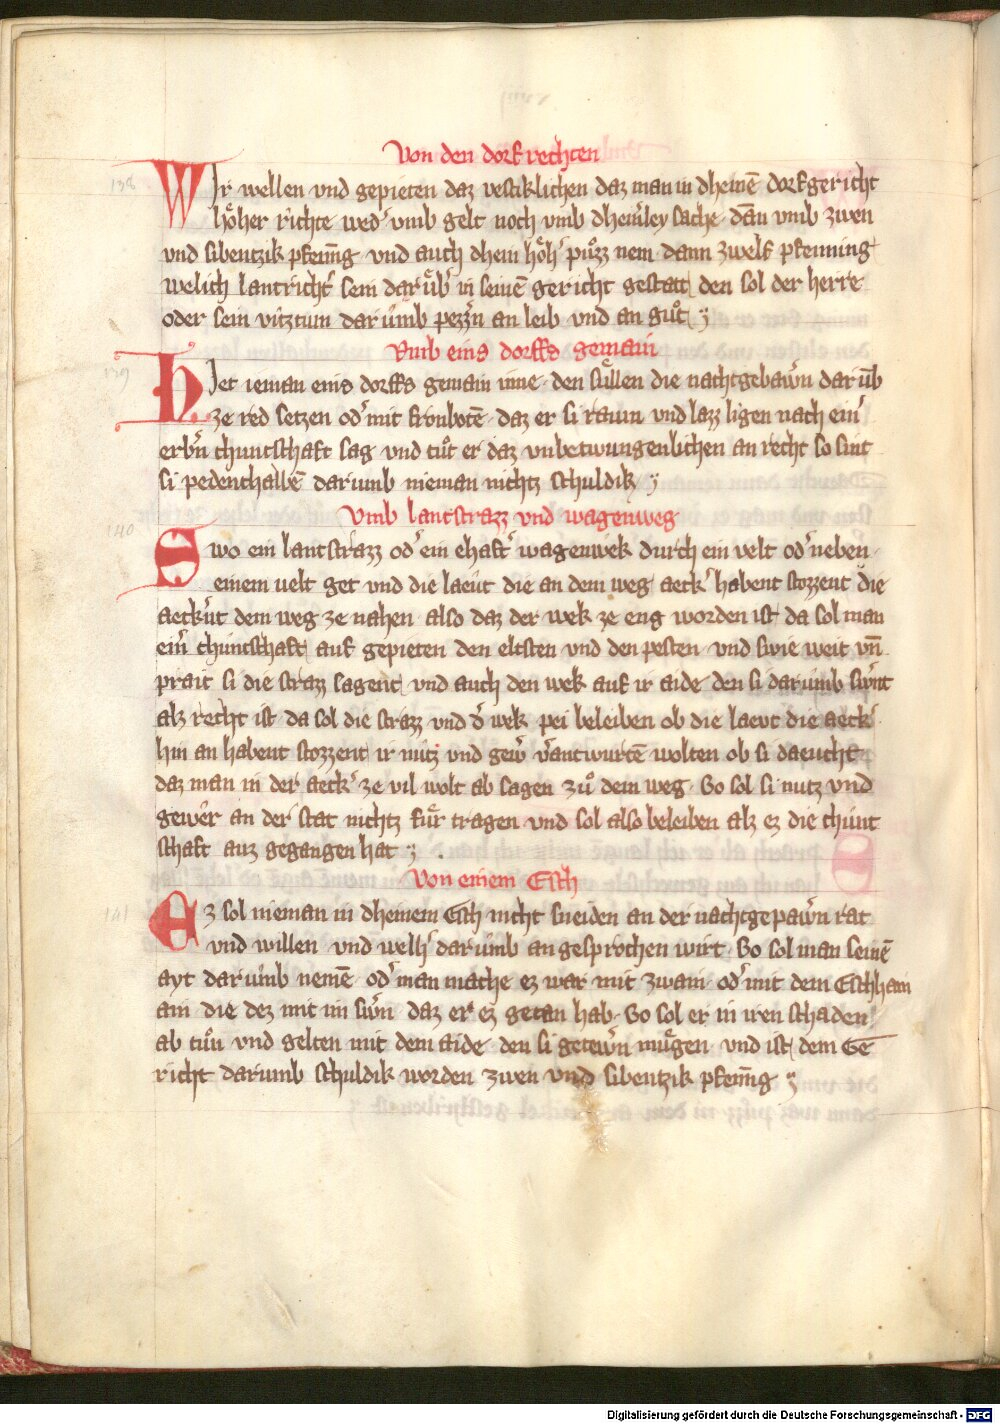 Von den dorf rechten
138
WIr wellen vnd gepieten daz vestiklichen daz man in dheinē dorfgericht
hoͤher richte wedˀ vmb gelt noch vmb dheinˀley sache dān vmb zwen
vnd sibentzik pfenīng vnd auch dhein hoͤhˀ puͤzz nem dann zwelf pfenning
welich lantrichtˀ sein daruͤbˀ in seinē gericht gestatt den sol der herre
oder sein vitztum darumb pezzˀn an leib vnd an guͦt
Vmb eins dorffs gemain
139
HJet ieman eins dorffs gemain inne den suͤllen die nachtgebawˀn darūb
ze red setzen odˀ mit fronbotē daz er si raum vnd lazz ligen nach einˀ
erbˀn chuntschaft sag vnd tuͦt er daz vnbetwungenlichen an recht so sint
si pedenthalbē darumb nieman nichtz schuldik
Vmb lantstrazz vnd wagenweg
140
Swo ein lantstrazz odˀ ein ehaftˀ wagenwek durch ein velt odˀ neben
einem velt get vnd die laeut die an dem weg aeckˀ habent stozzent die
aeckˀ ut dem weg ze nahen also daz der wek ze eng worden ist da sol man
einˀ chuntschaft auf gepieten den eltsten vnd den pesten vnd swie weit vn̄
prait si die strazz sagent vnd auch den wek auf ir aide den si darumb swˀnt
alz recht ist da sol die strazz vnd dˀ wek pei beleiben ob die laeut die aeckˀ
hin an habent stozzent ir nutz vnd gewˀ vˀantwurtē wolten ob si daeucht
daz man in der aeckˀ ze vil wolt ab sagen zuͦ dem weg So sol si nutz vnd
gewer an der stat nichtz fuͤr tragen vnd sol also beleiben alz ez die chunt
schaft auz gegangen hat
Von einem Esch
141
Ez sol nieman in dheinem Esch nicht sneiden an der nachtgepawˀn rat
vnd willen vnd welhˀ darumb angesprochen wirt So sol man seinē
ayt darumb nemē odˀ man mache ez war mit zwain odˀ mit dem Eschhain
ain die dez mit im swˀn daz er ez getan hab So sol er in iren schaden
ab tuͦn vnd gelten mit dem aide den si getewˀn muͤgen vnd ist dem Ge
richt darumb schuldik worden zwen vnd sibentzik pfenīng
Digitalisierung gefördert durch die Deutsche Forschungsgemeinschaft - DFG